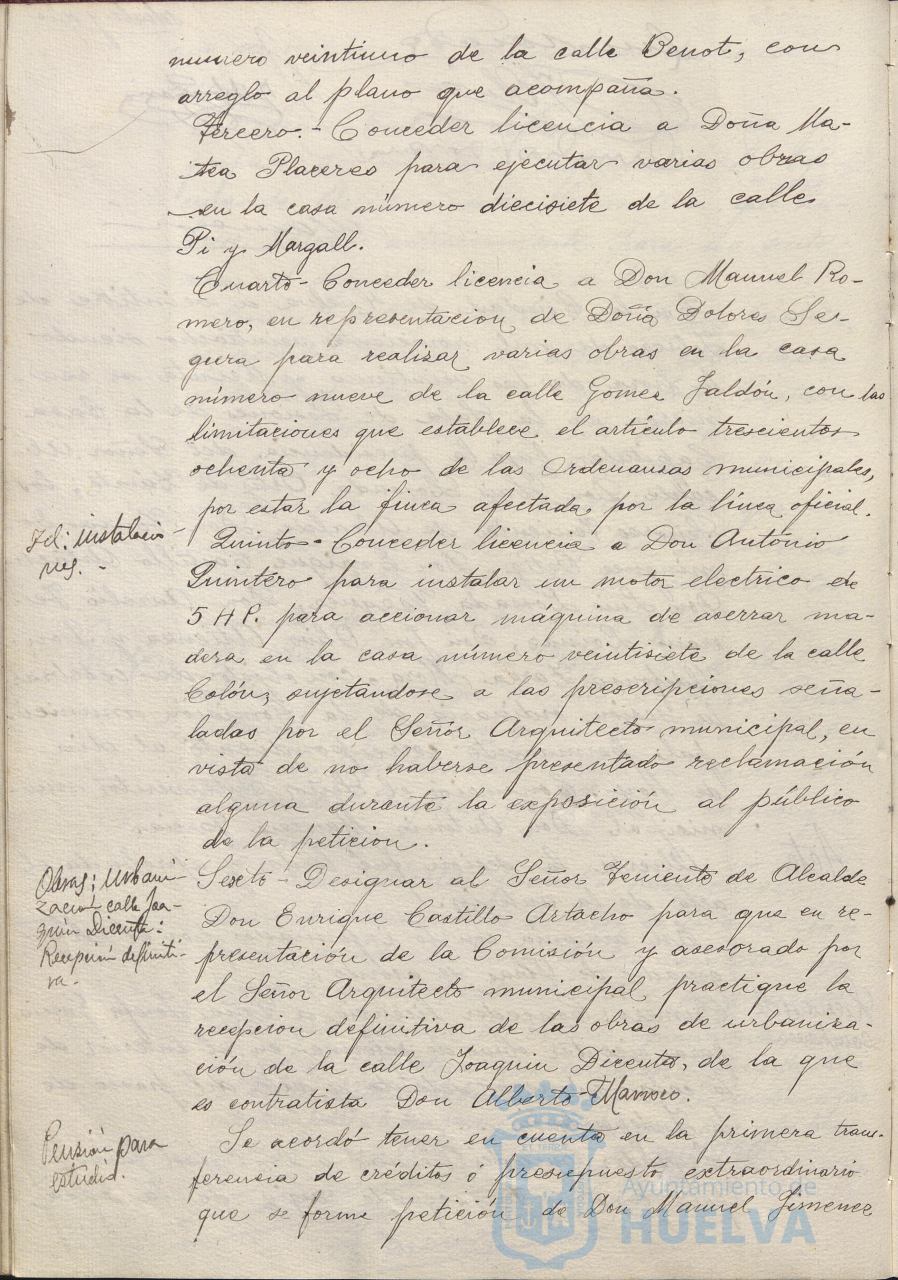 numero veintiuno de la calle Benot, con
arreglo al plano que acompaña.
Tercero.- Conceder licencia a Doña Ma-
tea Placeres para ejecutar varias obras
en la casa número diecisiete de la calle
Pi y Margall.
Cuarto- Conceder licencia a Don Manuel Ro-
mero, en representacion de Doña Dolores Se-
gura para realizar varias obras en la casa
número nueve de la calle Gomez Jaldón, con las
limitaciones que establece el artículo trescientos
ochenta y ocho de las Ordenanzas municipales,
por estar la finca afectada por la línea oficial.
Id: instalacio-
nes.-
Quinto- Conceder licencia a Don António
Quintero para instalar un motor electrico de
5 HP. para accionar máquina de aserrar ma-
dera en la casa número veintisiete de la calle
Colón, sujetandose a las prescripciones seña-
ladas por el Señor Arquitecto municipal, en
vista de no haberse presentado reclamación
alguna durante la exposición al público
de la peticion.
Obras: Urbani-
zacion calle Joa-
quin Dicenta:
Recepción definiti-
va.-
Sexto- Designar al Señor Teniente de Alcalde
Don Enrique Castillo Artacho para que en re-
presentación de la Comisión y asesorado por
el Señor Arquitecto municipal practique la
recepcion definitiva de las obras de urbaniza-
ción de la calle Joaquin Dicenta, de la que
es contratista Don Alberto
Pensión para
estudio.
Se acordó tener en cuenta en la primera trans-
ferencia de créditos ó presupuesto extraordinario
que se forme petición de Don Manuel Jimenez
Ayuntamiento de
HUELVA